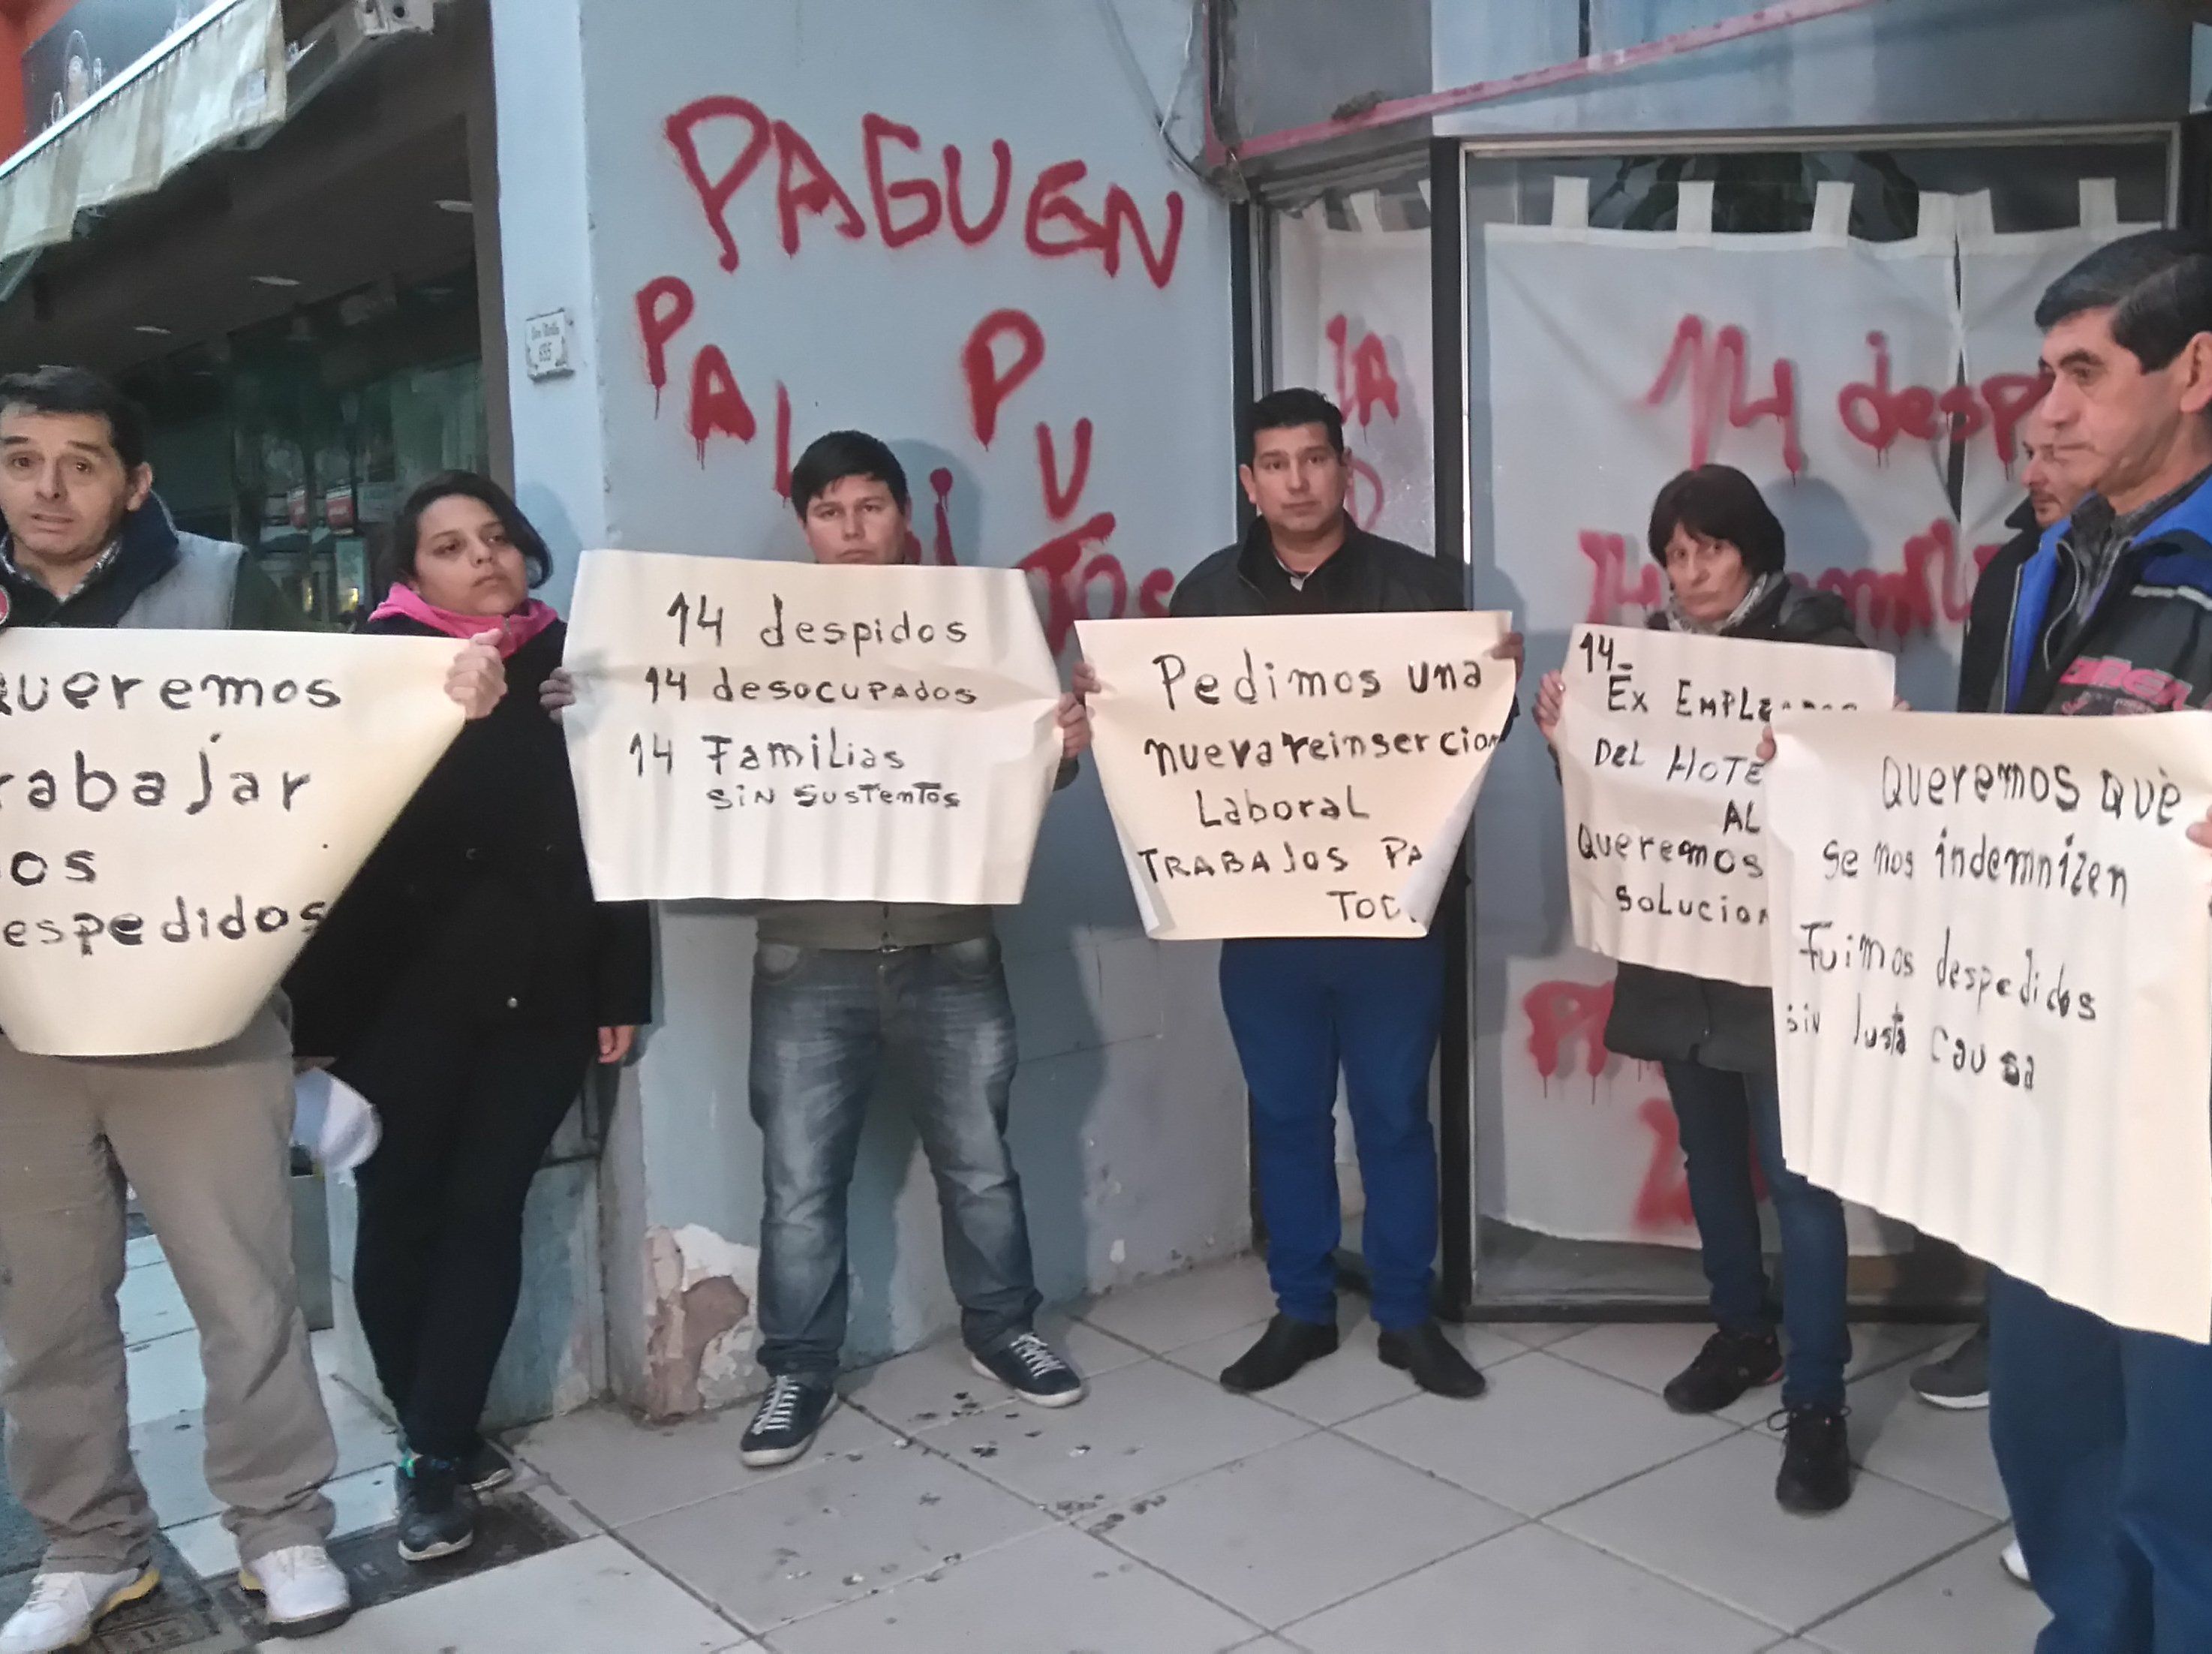 PAGUEN
PAL
PU
TOS
655
1A
14 desp
14
Queremos
rabajar
os
espedidos
14 despidos
14 desocupados
14 Familias
sin sustentos
Pedimos una
nueva reinsercion
Laboral
TRABAJOS PA
TOD
14-
Ex EMPLEADOS
DEL HOTE
AL
Queremos
Solucion
Queremos què
se nos indemnizen
Fuimos despedidos
sin Justa causa